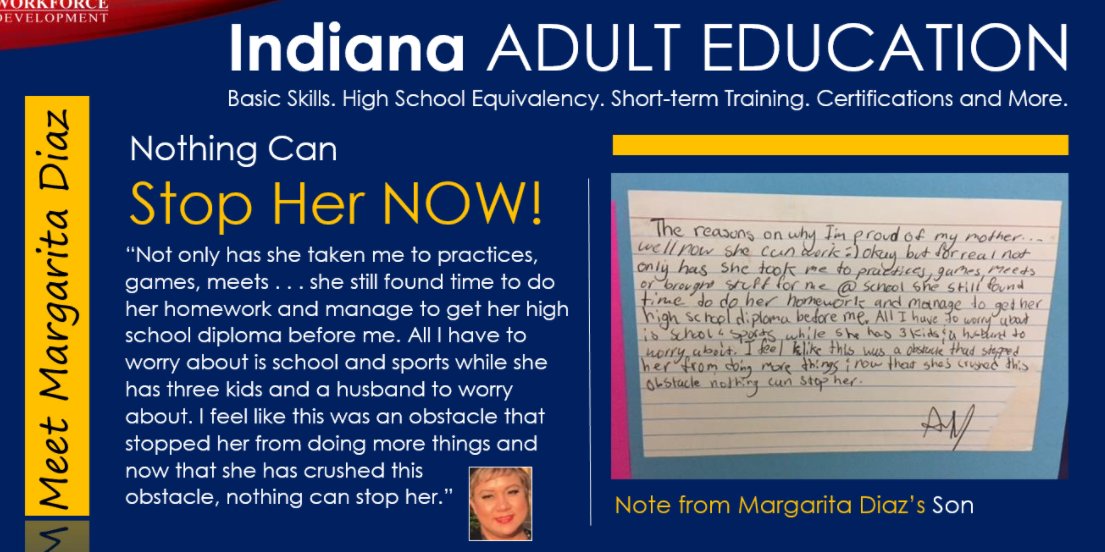 WORKFORCE
DEVELOPMENT
Indiana ADULT EDUCATION
Basic Skills. High School Equivalency. Short-term Training. Certifications and More.
Meet Margarita Diaz
M
Nothing Can
Stop Her NOW!
“Not only has she taken me to practices,
games, meets . . . she still found time to do
her homework and manage to get her high
school diploma before me. All I have to
worry about is school and sports while she
has three kids and a husband to worry
about. I feel like this was an obstacle that
stopped her from doing more things and
now that she has crushed this
obstacle, nothing can stop her.”
The reasons on why I'm proud of my mother...
well now she can work :) okay but for real not
only has she took me to practices, games, meets
or brought stuff for me @ school she still found
time do do her homework and manage to get her
high school diploma before me. All I have to worry about
is school & sports while she has 3 kids & a husband to
worry about. I feel like this was a obstacle that stopped
her from doing more things ; now that she's crushed this
obstacle nothing can stop her.
Note from Margarita Diaz’s Son